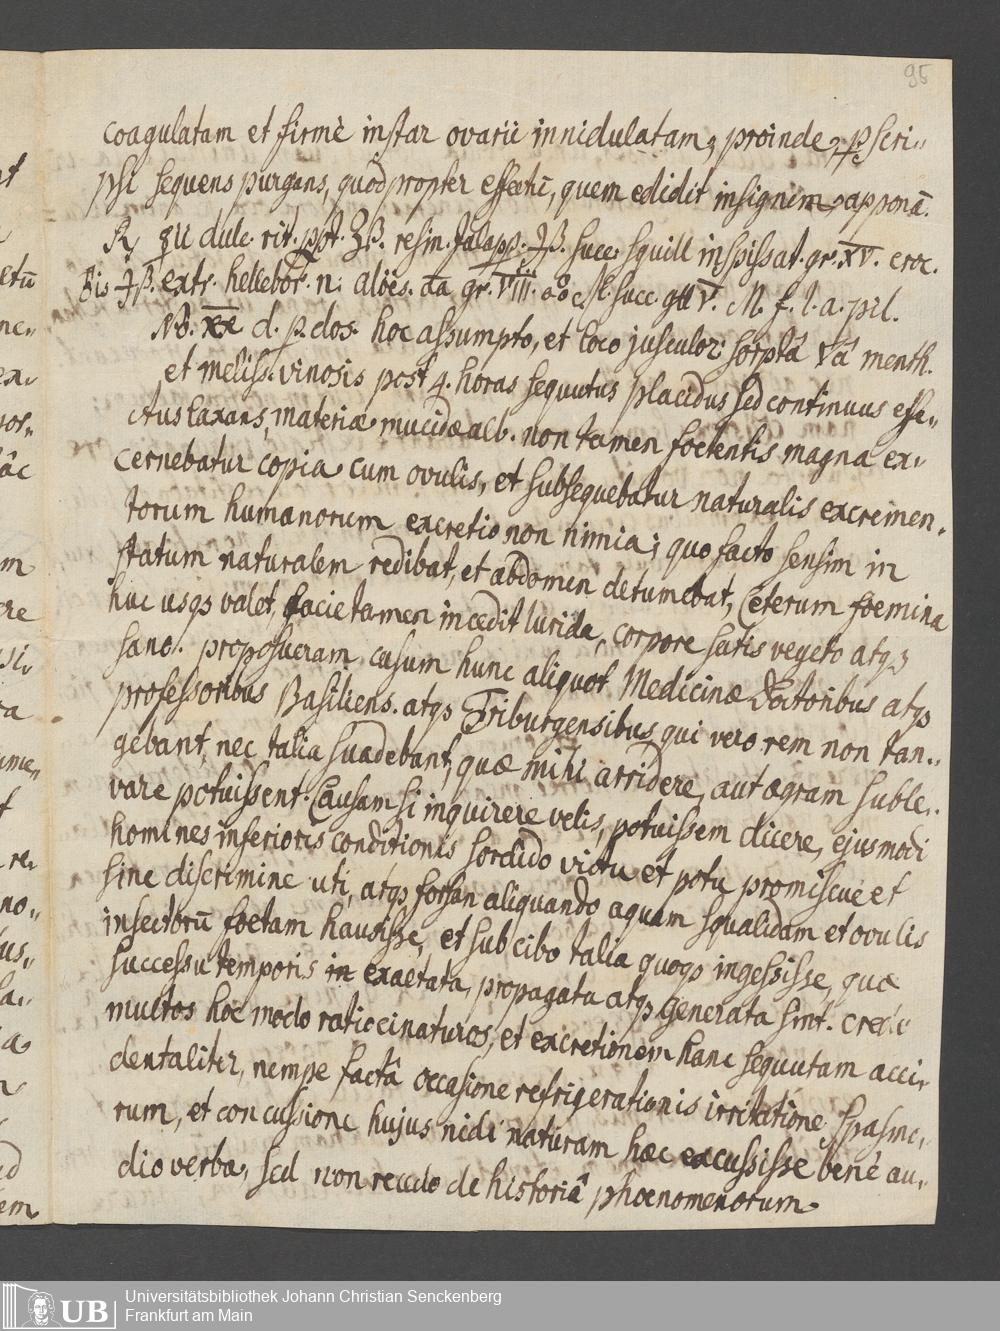 95
coagulatam et firmè instar ovarii innidulatam, proinde pscri„
psi sequens purgans, quod propter effectū, quem edidit insignem apponā.
℞ ☿ii dulc. rit. ppt. ʒß. resin. Jalapp. ℈ß. succ. squill inspissat. gr. XV. croc.
♂is ℈ß. extr. hellebor. n. aloës. āa gr. VIII. succ. gtt V. M. f. l. a. pil.
No. XX d. p. dos. hoc assumpto, et loco jusculor: sorptâ menth.
et meliss. vinosis post 4. horas sequutus placidus sed continuus effe„
ctus laxans, materiæ mucidæ alb. non tamen foetentis magna ex„
cernebatur copia cum ovulis, et subsequebatur naturalis excremen„
torum humanorum excretio non nimia; quo facto sensim in
statum naturalem redibat, et abdomen detumebat, Ceterum foemina
huc usqs valet, facie tamen incedit lurida, corpore satis vegeto atqs
sano. proposueram casum hunc aliquot Medicinæ Doctoribus atqs
professoribus Basiliens. atqs Friburgensibus qui vero rem non tan„
gebant, nec talia suadebant, quæ mihi arridere, aut ægram suble„
vare potuissent. Causam si inquirere velis, potuissem dicere, ejusmodi
homines inferioris conditionis sordido victu et potu promiscue et
sine discrimine uti, atqs forsan aliquando aquam squalidam et ovulis
insectorū foetam hausisse, et sub cibo talia quoqs ingessisse, quæ
successu temporis in exaetata, propagata atqs generata sint. credo
multos hoc modo ratiocinaturos, et excretionem hanc sequutam acci„
dentaliter, nempe factâ occasione refrigerationis irritatione spasmo„
rum, et concussione hujus nidi naturam hæc excussisse benè au„
dio verba, sed non recedo de historiâ phoenomenorum.
UB
Universitätsbibliothek Johann Christian Senckenberg
Frankfurt am Main